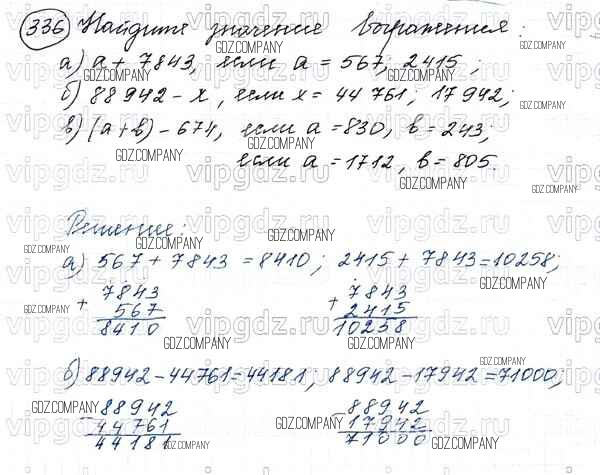 336 Найдите значение выражения:
а) a + 7843, если a = 567, 2415;
б) 88942 - x, если x = 44 761; 17 942;
в) (a + b) - 674, если a = 830, b = 243;
если a = 1712, b = 805.
Решение:
а) 567 + 7843 = 8410; 2415 + 7843 = 10258;
+ 7843 + 7843
567 2415
8410 10258
б) 88942 - 44761 = 44181; 88942 - 17942 = 71000;
- 88942 - 88942
44761 17942
44181 71000